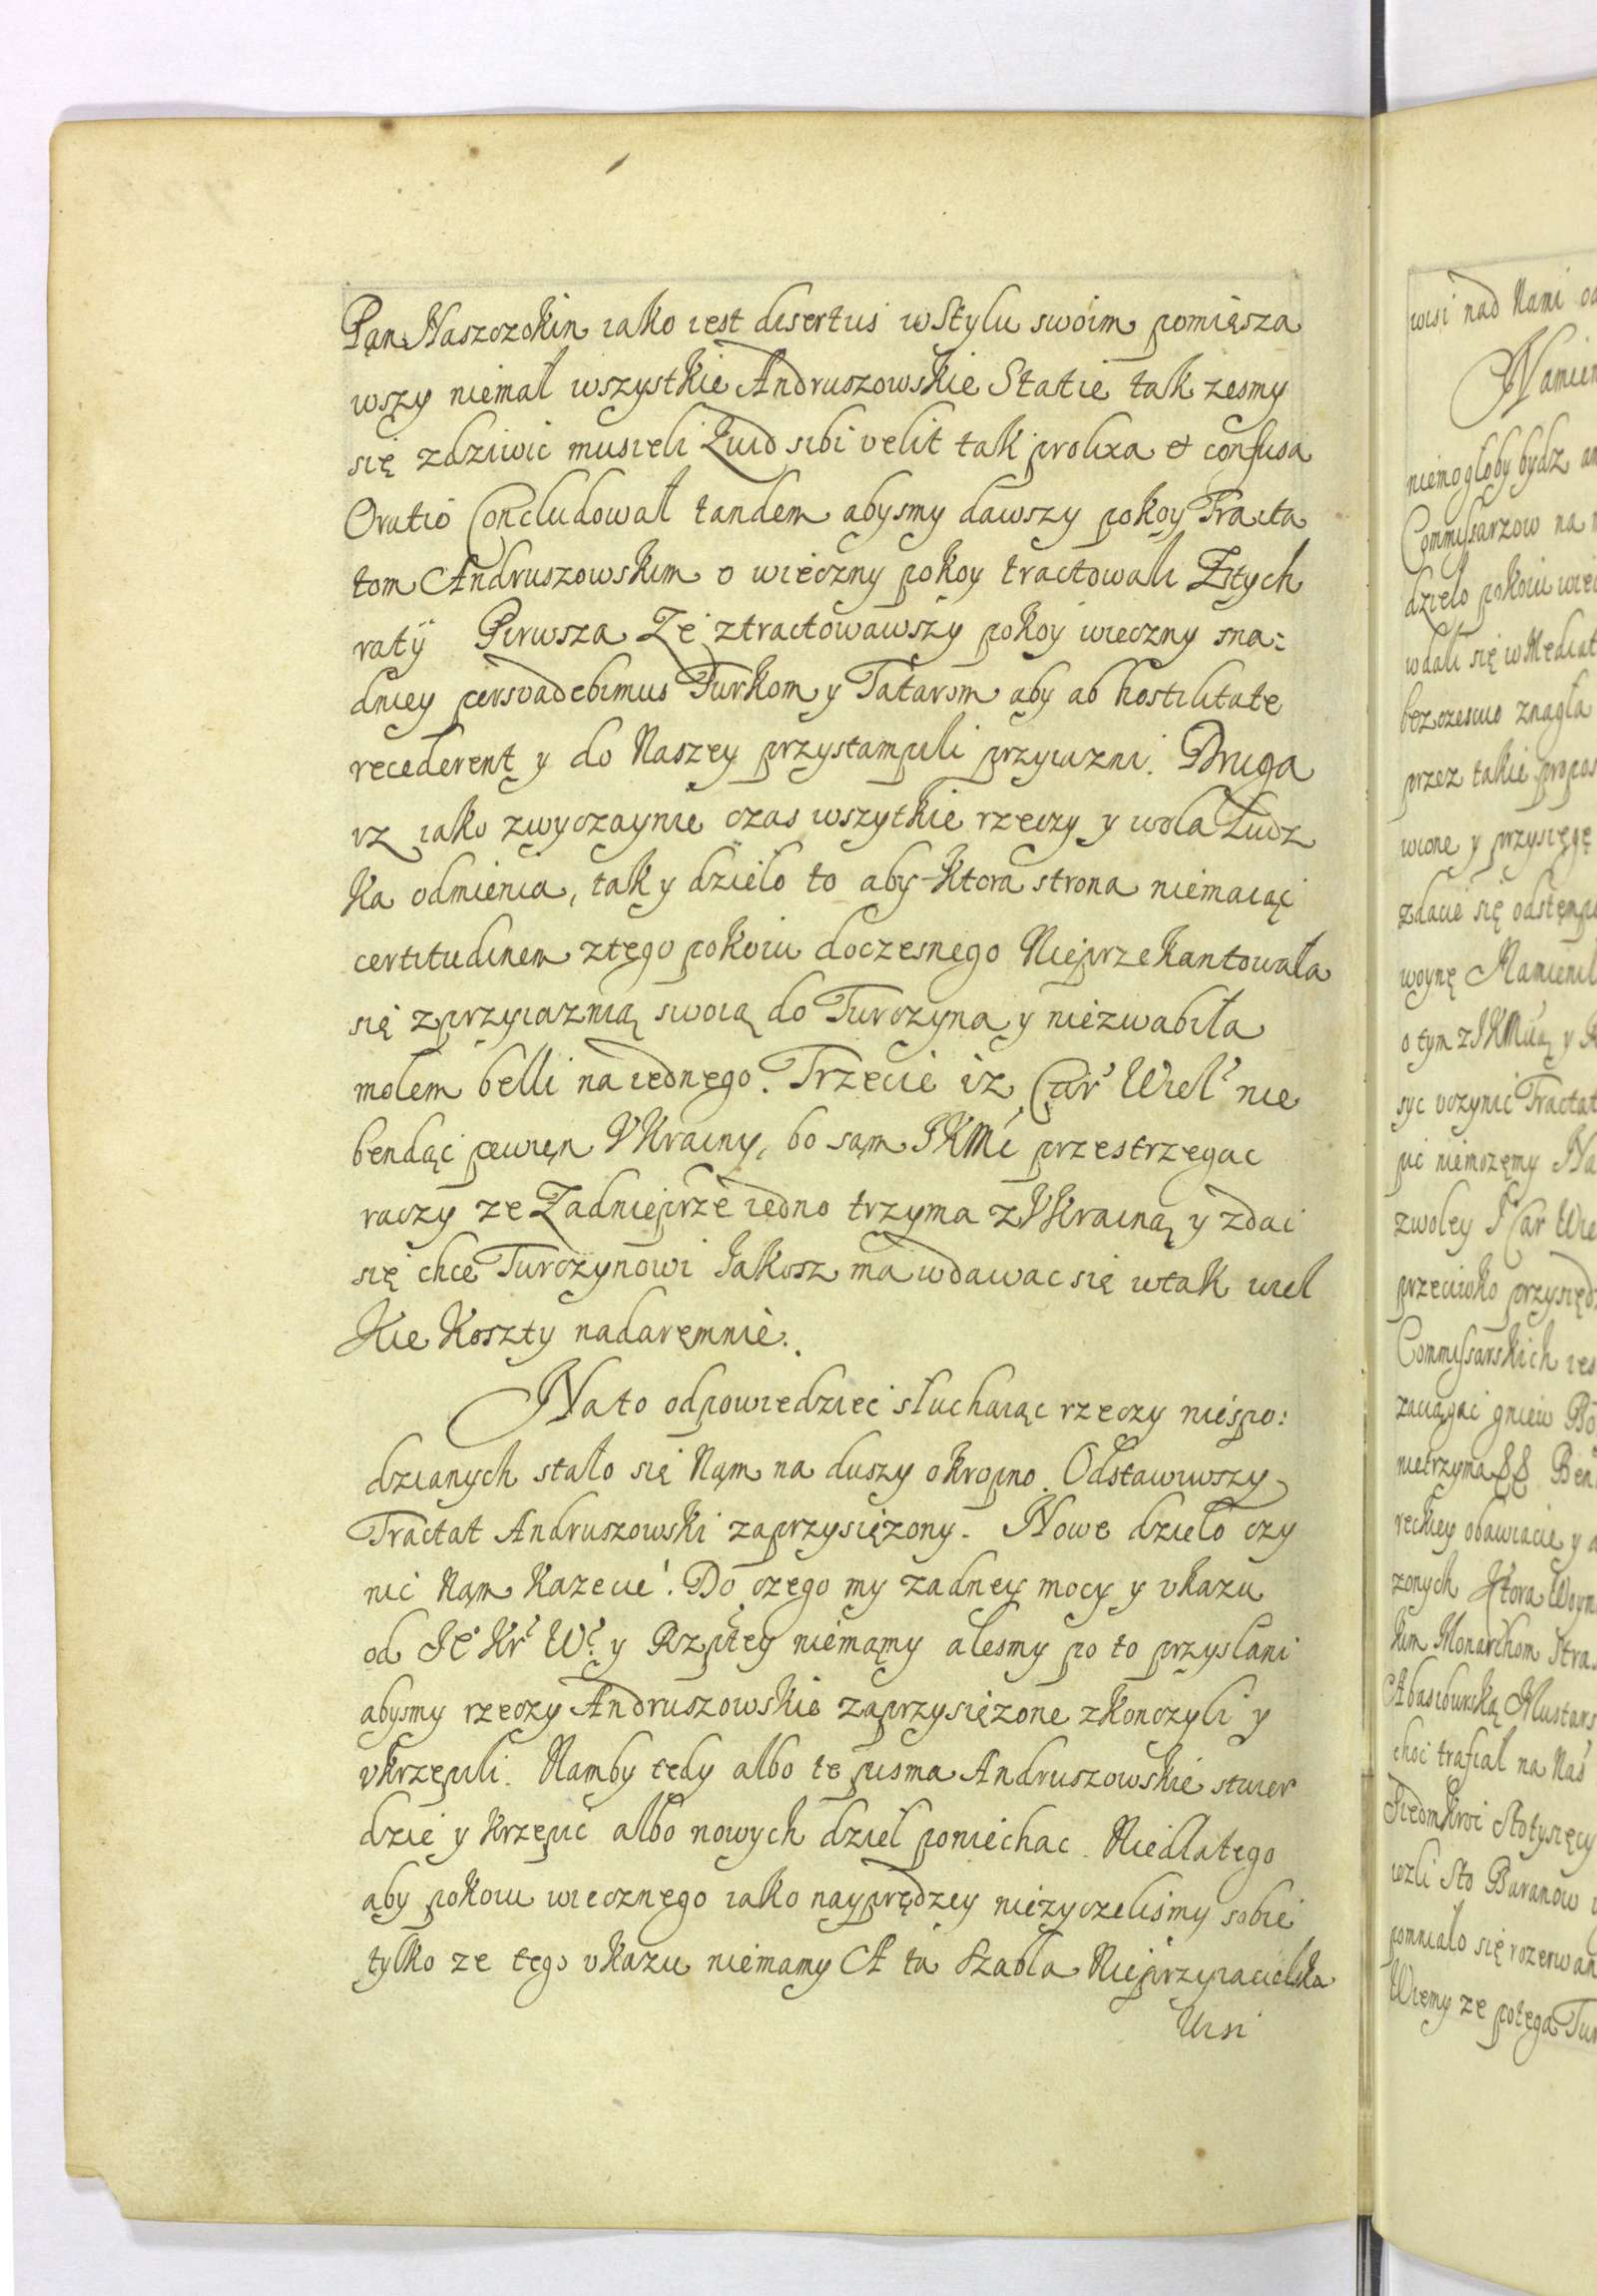 Pan Naszczokin iako iest disertus w Stylu swoim pomięsza
wszy niemal wszystkie Andruszowskie Statie tak zesmy
się zdziwic musieli Quid sibi velit tak prolixa et confusa
Oratio Concludował tandem abysmy dawszy pokoy Tracta
tom Andruszowskim o wieczny pokoy tractowali Ztych
ratÿ Pirwsza Ze ztractowawszy pokoy wieczny sna:
dniey persvadebimus Turkom y Tatarom aby ab hostilitate
recederent y do Naszey przystampili przyiazni. Druga
vz iako zwyczaynie czas wszytkie rzeczy y wola Ludz
ka odmienia, tak y dzieło to aby ktora strona niemaiąc
certitudinem ztego pokoiu doczesnego Nieprzekantowała
się zprzyiaznią swoią do Turczyna y niezwabiła
molem belli na iednego. Trzecie iz Car Wiel nie
bendąc pewien Vkrainy, bo sam JKMc przestrzegac
raczy ze Zadnieprze iedno trzyma zVkrainą y zdac
się chce Turczynowi Jakosz ma wdawac się wtak wiel
kie koszty nadaremnie.
Na to odpowiedziec słuchaiąc rzeczy niespo:
dzianych stało się Nam na duszy okropno. Odstawiwszy
Tractat Andruszowski zaprzysiężony. Nowe dzieło czy
nic Nam kazecie. Do czego my zadney mocy y vkazu
od Je Kr W. y Rzptey niemamy alesmy po to przysłani
abysmy rzeczy Andruszowskie zaprzysiężone zkonczyli y
vkrzepili. Namby tedy albo te pisma Andruszowskie stwier
dzic y krzepic albo nowych dzieł poniechac. Niedlatego
aby pokoiu wiecznego iako nayprędzey nieżyczelismy sobie
tylko ze tego vkazu niemamy A ta Szabla Nieprzyiacielska
Wisi
wisi nad Nami
niemogłoby bydz
Commissarzow na
dzieło pokoiu
wdali się w
znagła
przez takie
wione y przysięgę
zdacie się
woynę
o tym z JKMcią y
syc vczynic Tractat
pic niemozemy
zwoley J Car
przeciwko
Commissarskich
zaciągac gniew
nietrzyma
reckiey obawiacie y
zonych ktora
kim Monarchom
choc trafiał na Nas
wzli Sto Baranow
pomniało się
Wiemy ze potęga